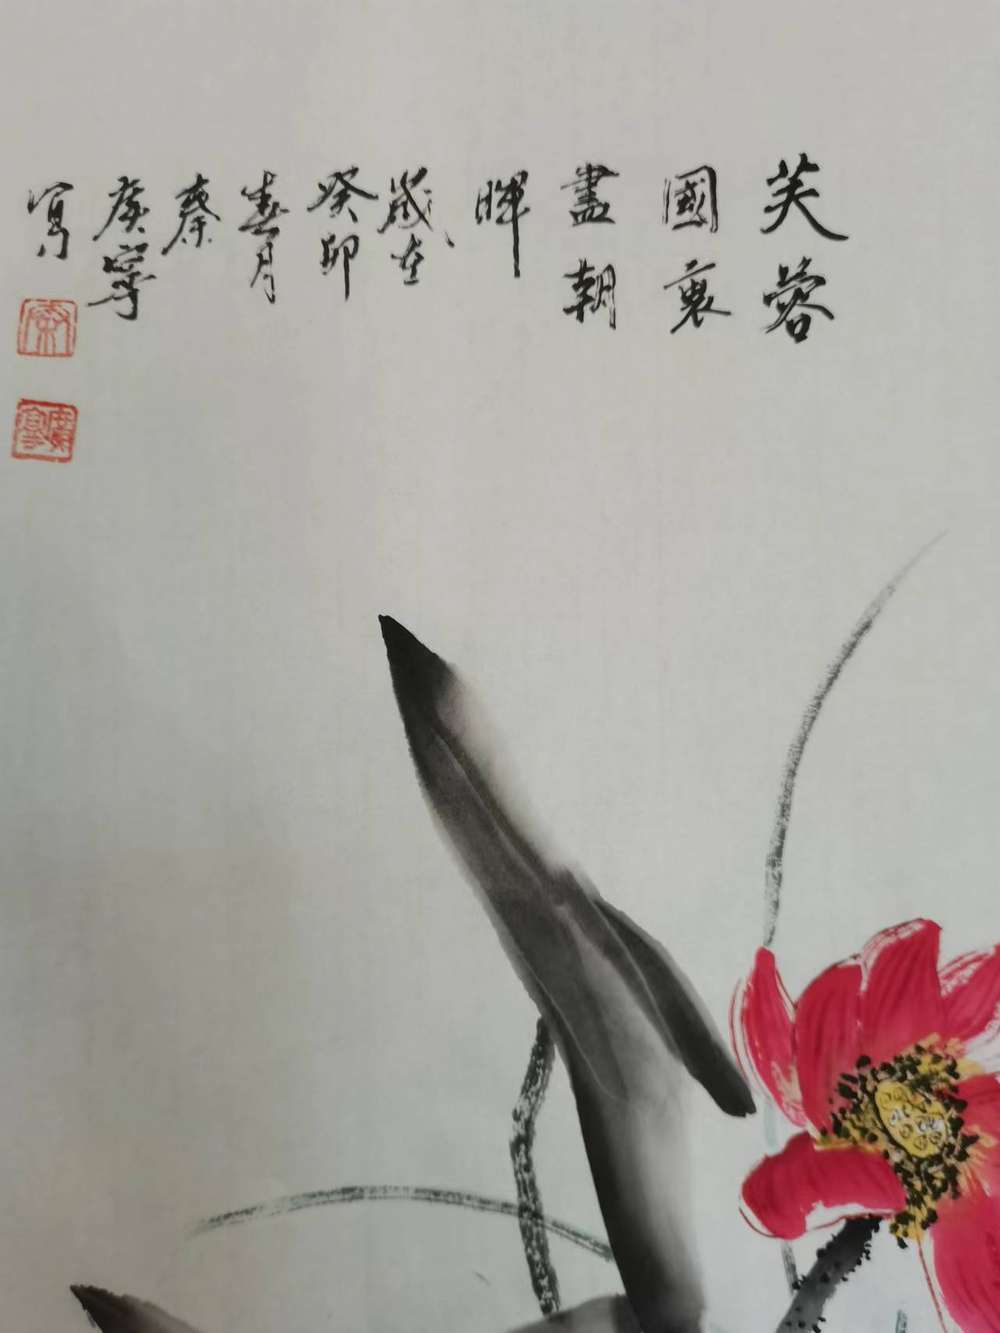 芙蓉
國裏
盡朝
暉
歲在
癸卯
春月
秦
庚寧
寫